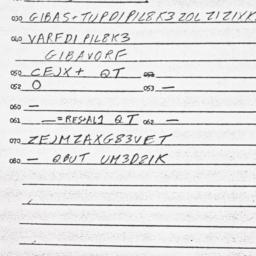 030 GIBAS+TUPDIPIL8K3 ZOL ZIZIVK
040 VAREDI PIL8K3
GIBAVORF
050 CEJX+ QT 051
052 O 053 —
060 —
061 —=RES+AL1 QT 062 —
070 ZEJMZAXG83VET
080 — QBUT UM3D21K